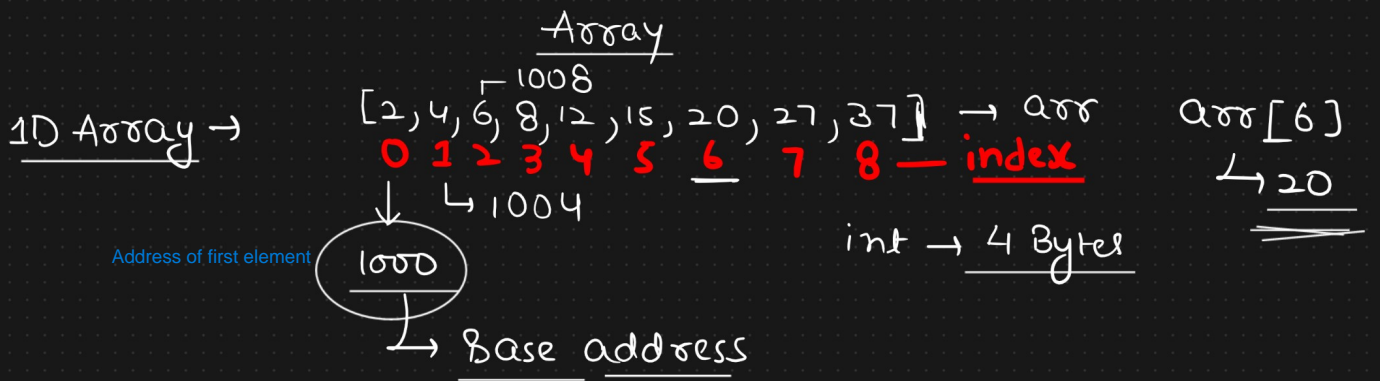 Array
1008
1D Array → [2, 4, 6, 8, 12, 15, 20, 27, 37] → arr arr[6]
0 1 2 3 4 5 6 7 8 — index
↳ 20
↳ 1004
int → 4 Bytes
Address of first element
1000
↳ Base address